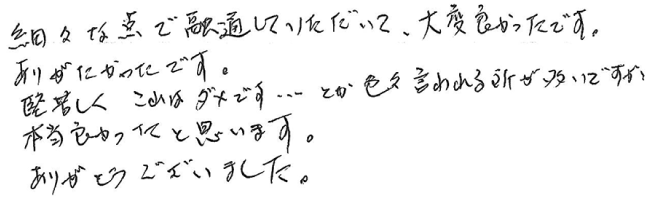 細々な点で融通していただいて、大変良かったです。
ありがたかったです。
堅苦しく これはダメです…とか色々言われる所が多いですが
本当良かったと思います。
ありがとうございました。